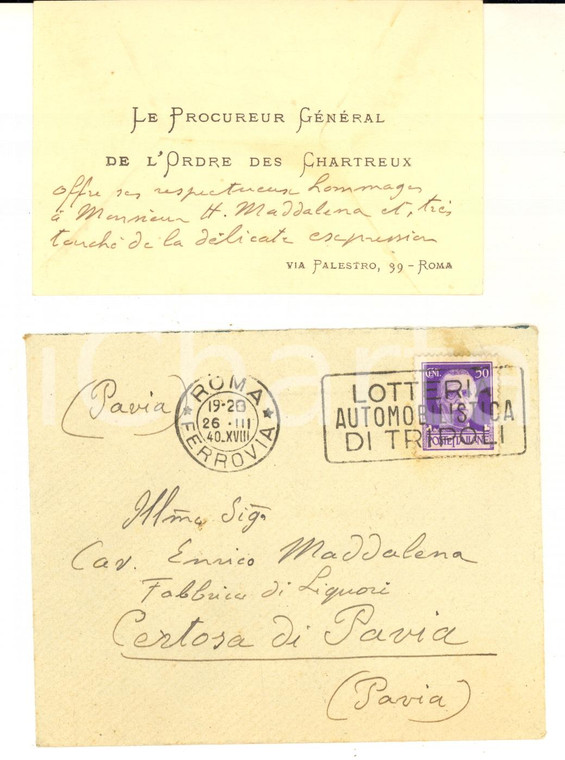 LE PROCUREUR GÉNÉRAL
DE L'ORDRE DES CHARTREUX
offre ses respectueux hommages
à Monsieur H. Maddalena et, très
touché de la délicate expression
VIA PALESTRO, 39 - ROMA
(Pavia)
ROMA
19-20
26 III
40.XVIII
FERROVIA
LOTTERI
AUTOMOBILISTICA
DI TRIPOLI
CM. 50
POSTE ITALIANE
Illmo Sigr
Cav. Enrico Maddalena
Fabbrica di Liquori
Certosa di Pavia
(Pavia)